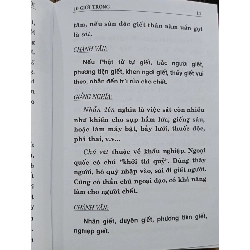 10 GIỚI TRỌNG
13
tâm, nếu sân độc giết thân năm mãn gọi
là tội.
CHÁNH VĂN:
Nếu Phật tử tự giết, bảo người giết,
phương tiện giết, khen ngợi giết, thấy giết vui
theo, nhẫn đến trù rủa cho chết.
GIẢNG NGHĨA:
Nhẫn đến nghĩa là việc sát còn nhiều
như khiến cho sụp hầm lửa, giếng sâu,
hoặc làm máy bật, bẫy lưới, thuốc độc,
phá thai, v.v...
Chú sát thuộc về khẩu nghiệp. Người
quốc có chú "khởi thi quỷ". Dùng thây
người, hô quỷ nhập vào, sai đi giết người.
Cũng có thần chú ngoại đạo, có khả năng
làm cho người chết.
CHÁNH VĂN:
Nhân giết, duyên giết, phương tiện giết,
nghiệp giết.